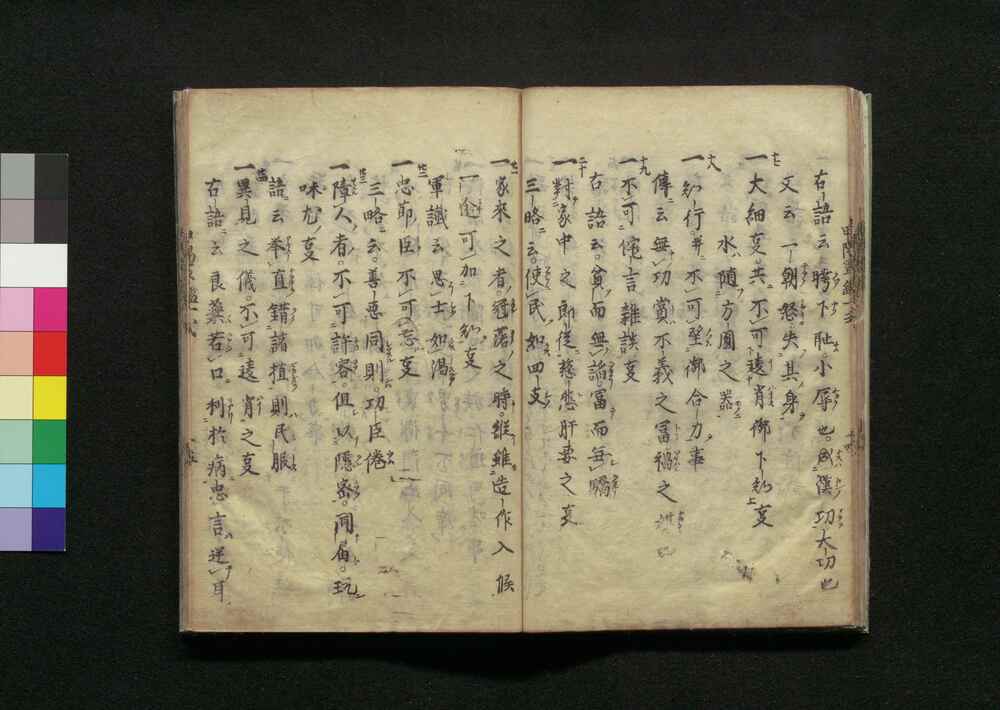 右語云胯下耻小辱也。成漢功大功也
文云一朝怒失其身
十七
一大細変共不可違背御下知変
水随方圓之器
十八
一知行并不可望御合力事
傳云無功賞不義之富禍之媒也
十九
一不可侘言雑談変
右語云。貧而無諂富而無驕
二十
一對家中之郎従慈悲肝要之変
三略云。使民如四支
廿一
一家来之者。
之時。縦雖造作入候
一途可加下知変
軍識云思士如渇
廿二
一忠節臣不可忘変
三略云。善悪同則。功臣倦
廿三
一障人者。不可許容。但以隠密。聞届。玩
味尤変
語云挙直錯諸枉則民服
廿四
一異見之儀。不可違背之変
右語云良薬若口利於病忠言逆耳